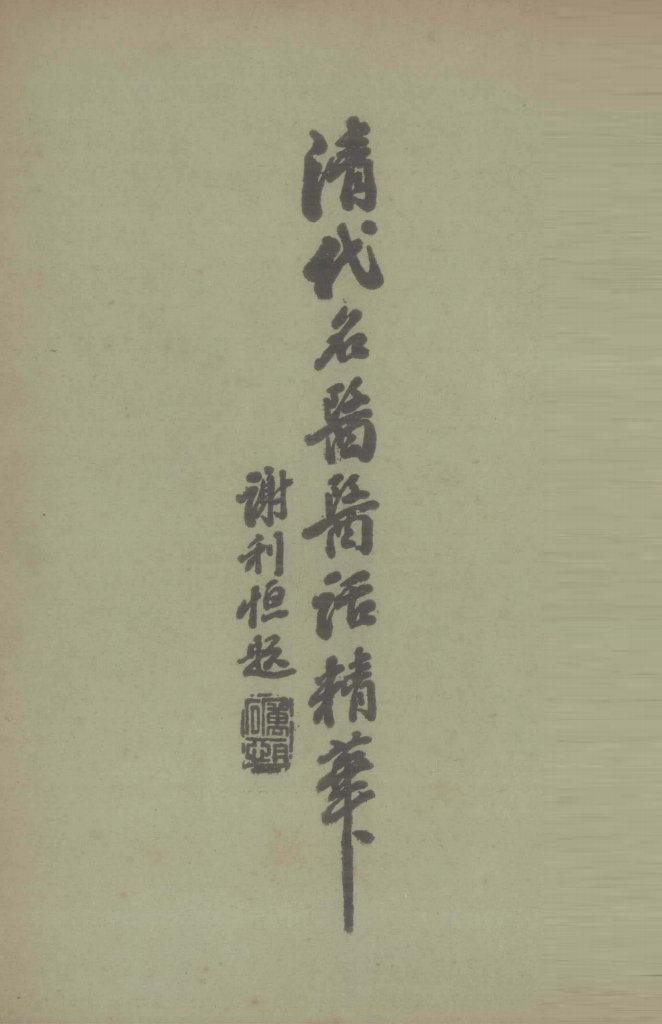 清代名醫醫話精華
謝利恒題